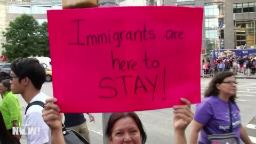 Immigrants are
here to
STAY!
NOW!